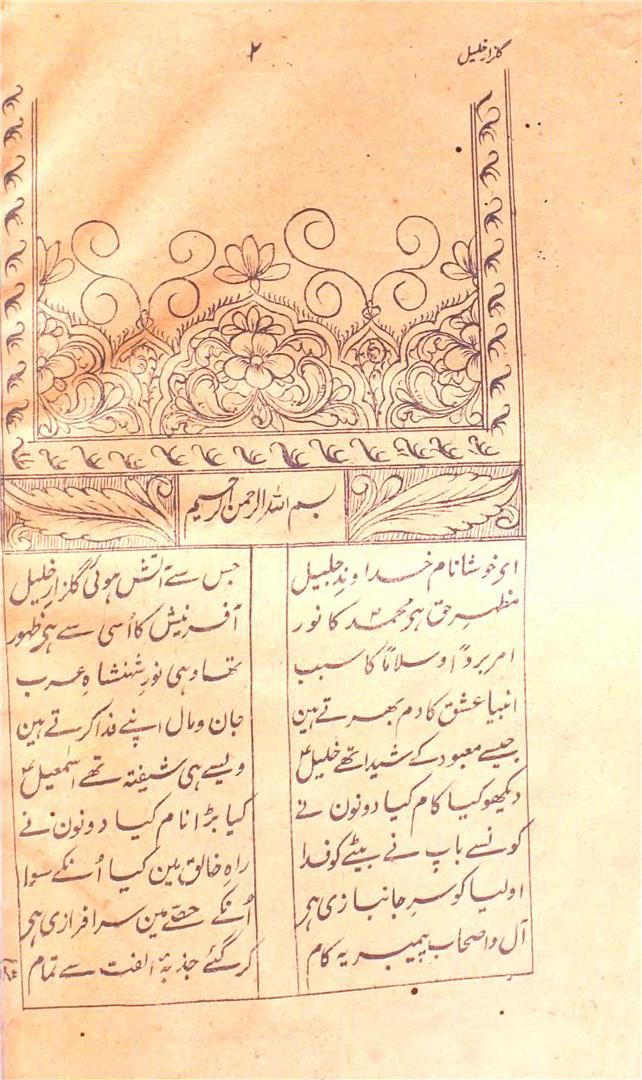 گلزار خلیل
۲
بسم اللہ الرحمن الرحیم
ای خوشا نام خداوندِ جلیل
جس سے آتش ہوئی گلزارِ خلیل
مظہرِ حق ہی محمد کا نور
آفرنیش کا اُسی سے ہی ظہور
امر برداً وسلاماً کا سبب
تھا وہی نورِ شہنشاہِ عرب
انبیا عشق کا دم بھرتے ہین
جان ومال اپنے فدا کرتے ہین
جیسے معبود کے شیدا تھے خلیلؑ
ویسے ہی شیفتہ تھے اسمٰعیلؑ
دیکھو کیا کام کیا دونون نے
کیا بڑا نام کیا دونون نے
کونسے باپ نے بیٹے کو فدا
راہِ خالق مین کیا اُنکے سوا
اولیا کو سرِ جانبازی ہی
اُنکے حصّے مین سرافرازی ہی
آل واصحاب پیمبر یہ کام
کرگئے جذبۂ الفت سے تمام